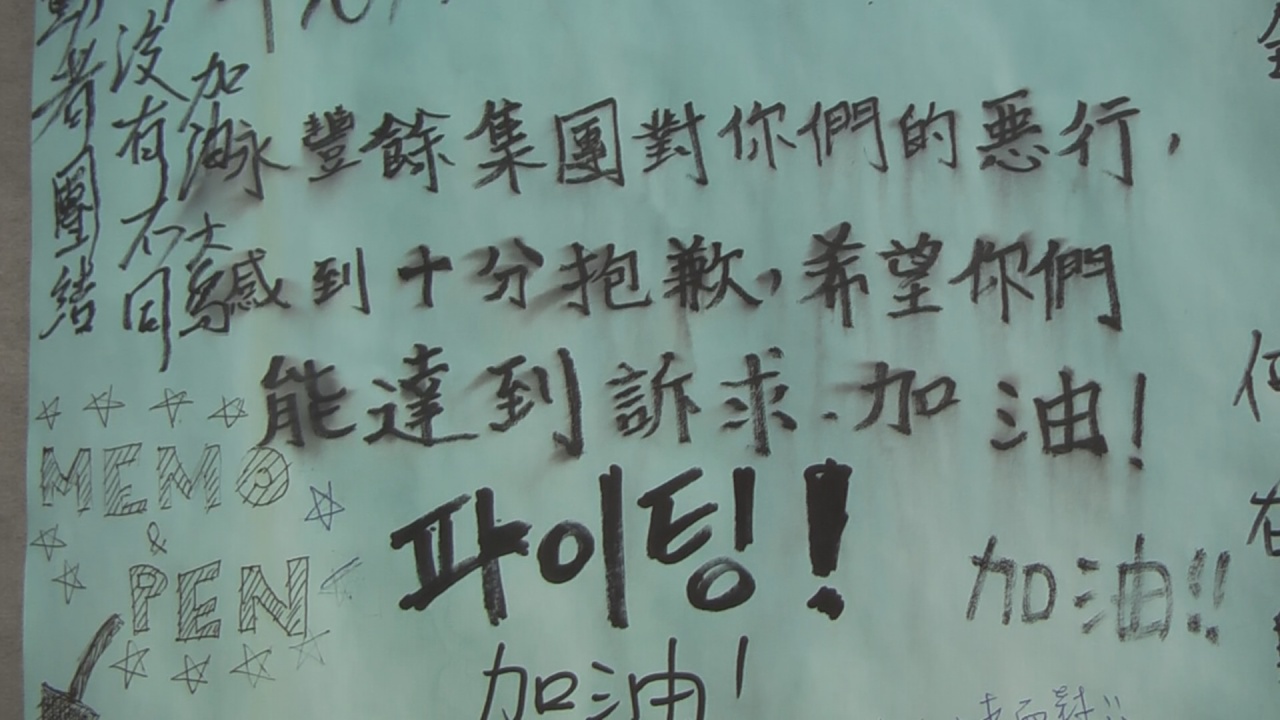 永豐餘集團對你們的惡行，
感到十分抱歉，希望你們
能達到訴求．加油！
파이팅!
加油!!
加油!
者團結
沒有不同
加油
MEMO
&
PEN